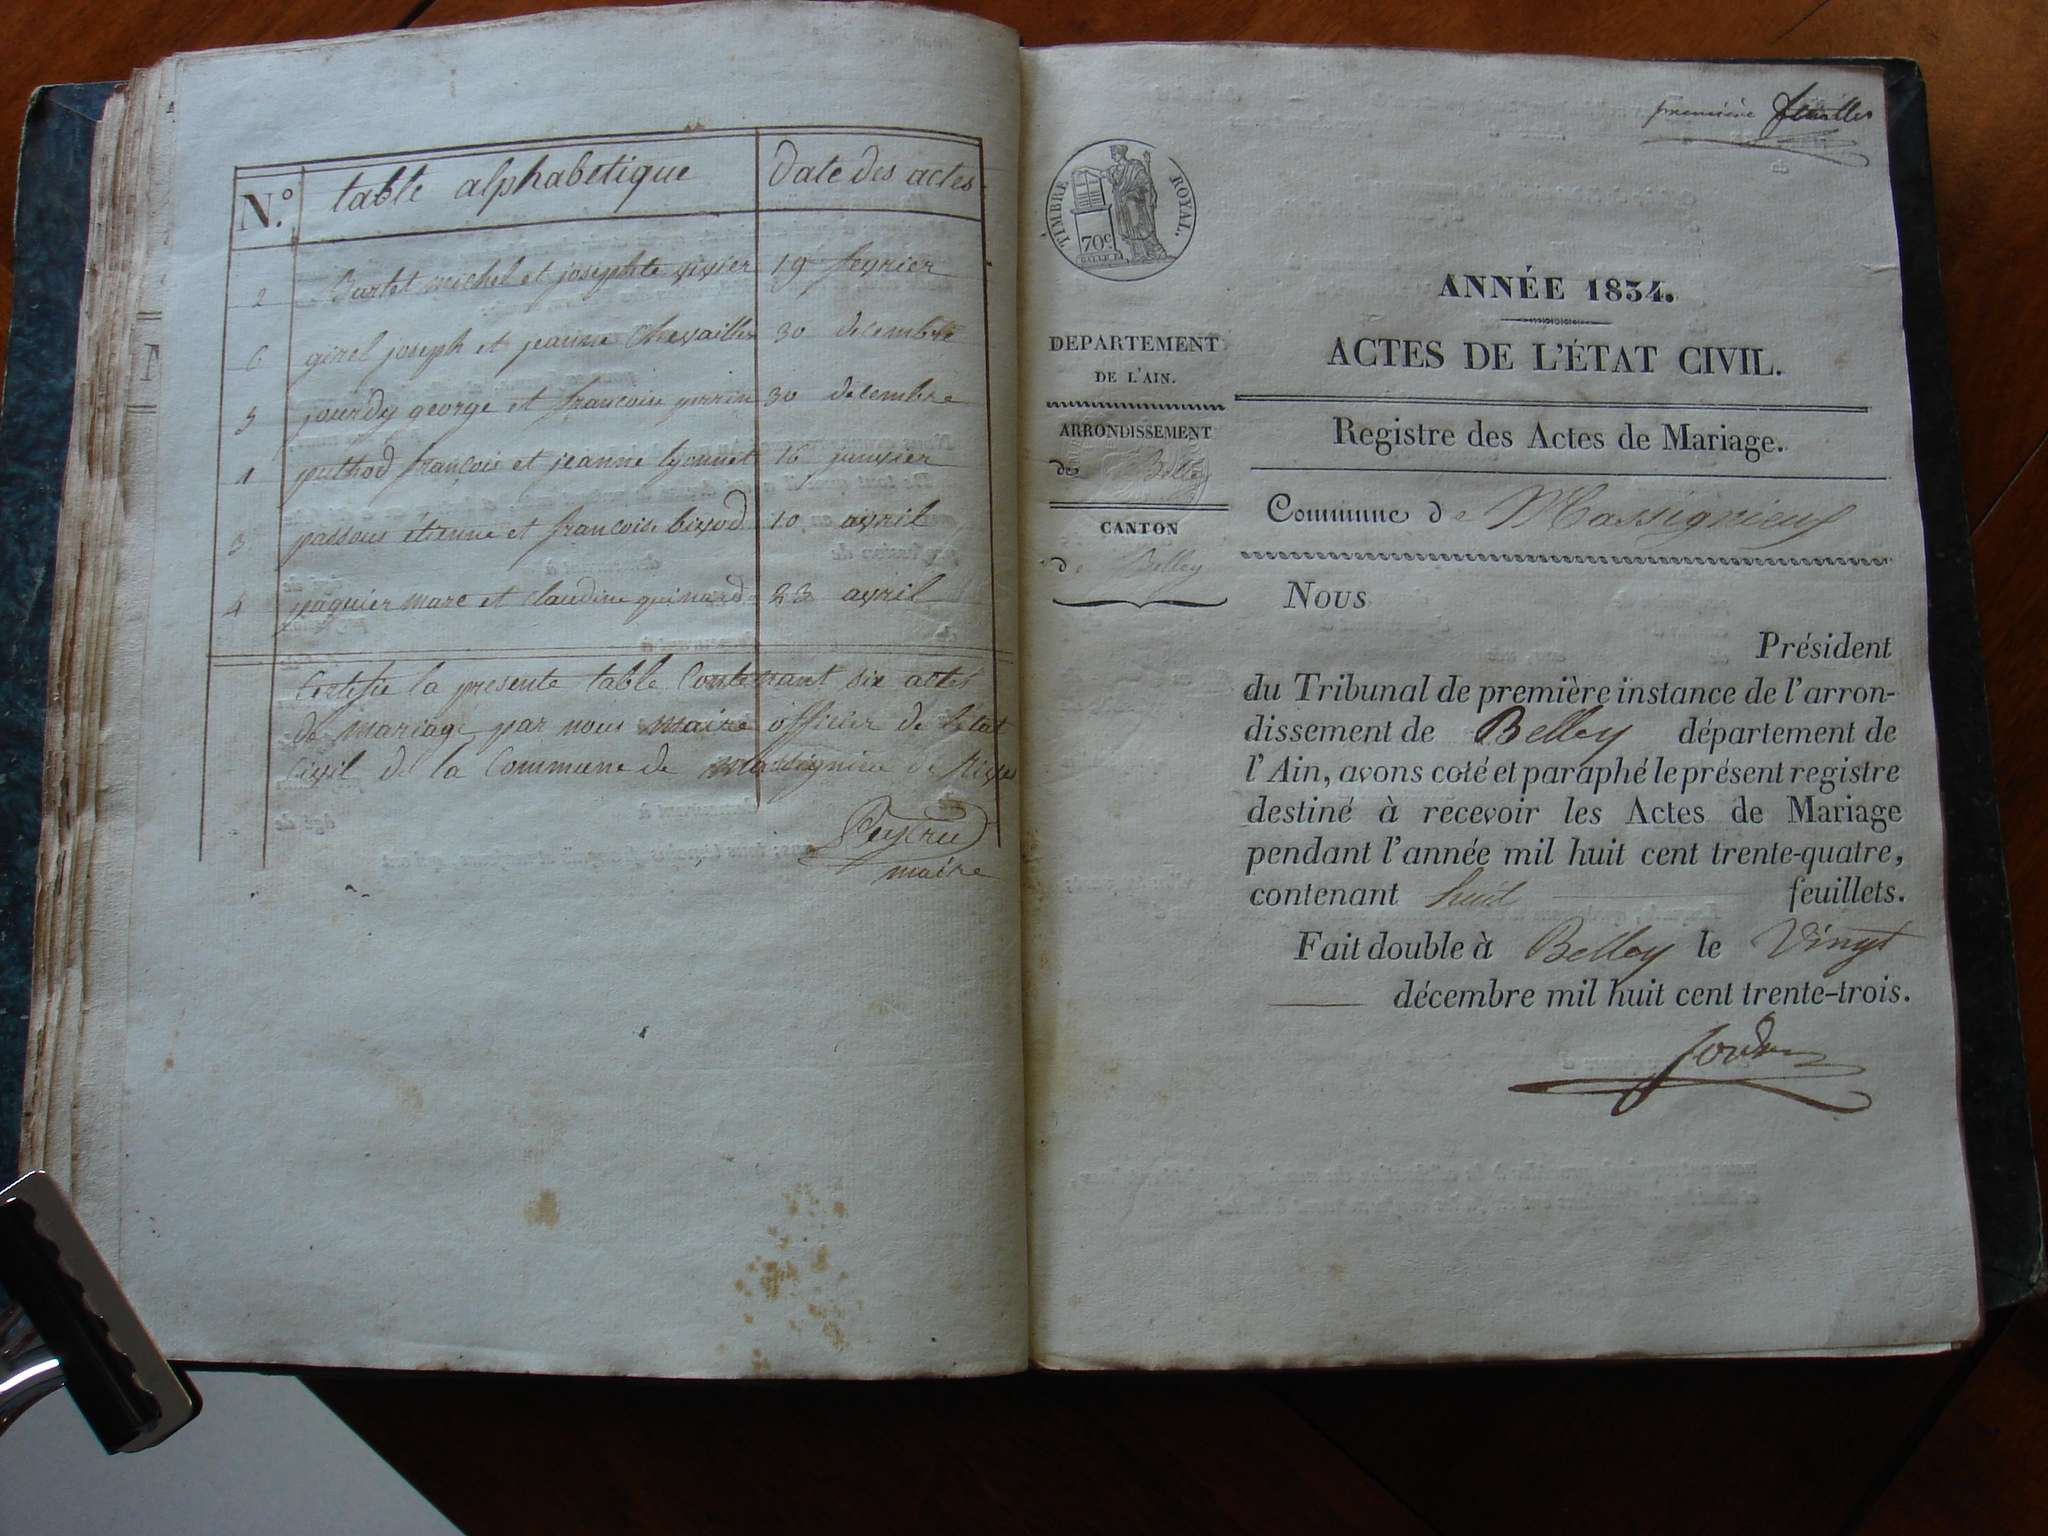 N.° table alphabetique date des actes
2 Burtet michel et josephte vivier 19 fevrier
6 girel joseph et jeanne Chevailler 30 decembre
5 jourdy george et francoise perrin 30 decembre
1 puthod françois et jeanne lyonnet 16 janvier
3 passous étienne et francoise bivod 10 avril
4 paquier marc et claudine guinard 23 avril
Certifié la presente table Contenant six actes
de mariage par nous maire officier de l'état
Civil de la Commune de massignieu de Rives
Peytrud
maire
première feuilles
TIMBRE ROYAL.
70c
ANNÉE 1834.
ACTES DE L'ÉTAT CIVIL.
DEPARTEMENT
DE L'AIN.
ARRONDISSEMENT
de Belley
CANTON
de Belley
Registre des Actes de Mariage.
Commune de Massignieux
Nous
Président
du Tribunal de première instance de l'arron-
dissement de Belley département de
l'Ain, avons coté et paraphé le présent registre
destiné à recevoir les Actes de Mariage
pendant l'année mil huit cent trente-quatre,
contenant huit feuillets.
Fait double à Belley le Vingt
décembre mil huit cent trente-trois.